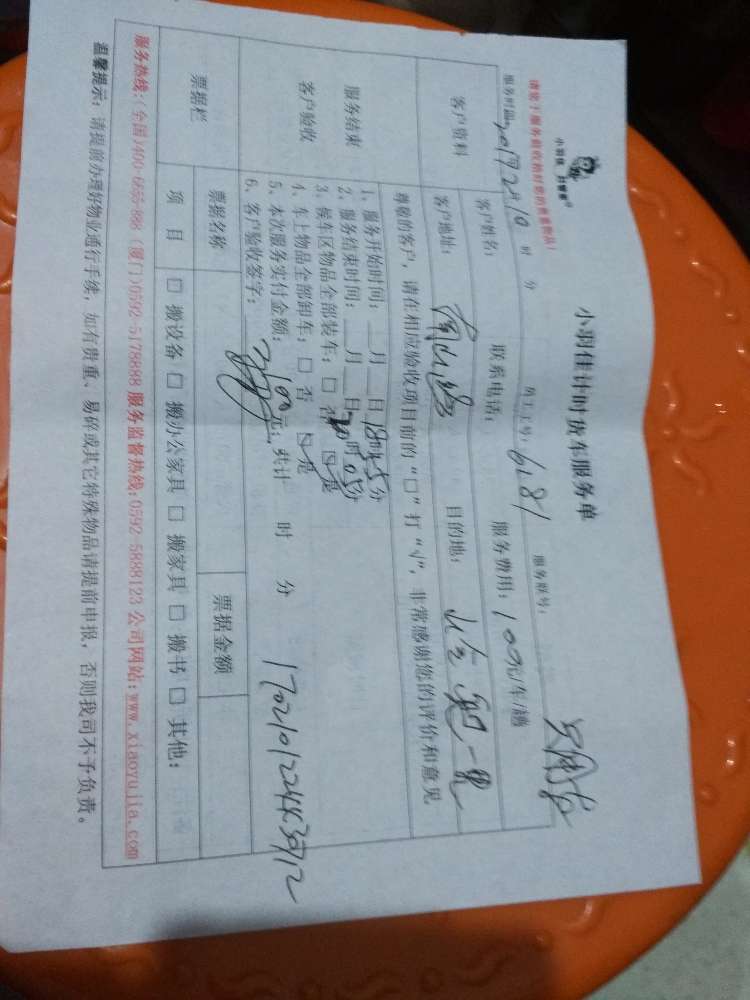 小羽佳 好管家
请您于服务验收格好您的贵重物品！
小羽佳计时货车服务单
服务时间：2017年2月10 时 分 员工工号：6181 服务账号：
客户资料
客户姓名： 联系电话： 服务费用：100元/车/趟
客户地址： 目的地：
服务结束
客户验收
尊敬的客户，请在相应验收项目前的“□”打“√”，非常感谢您的评价和意见
1、服务开始时间：__月__日18时45分
2、服务结束时间：__月__日 时05分
3、候车区物品全部装车：□ 否 ☑ 是
4、车上物品全部卸车：□ 否 ☑ 是
5、本次服务实付金额：100元；共计 时 分
6、客户验收签字：
票据栏
票据名称 票据金额
项 目 □ 搬设备 □ 搬办公家具 □ 搬家具 □ 搬书 □ 其他：
服务热线：(全国)400-6655-888 (厦门)0592-5178888 服务监督热线：0592-5888123 公司网站：www.xiaoyujia.com
温馨提示：请提前办理好物业通行手续，如有贵重、易碎或其它特殊物品请提前申报，否则我司不予负责。